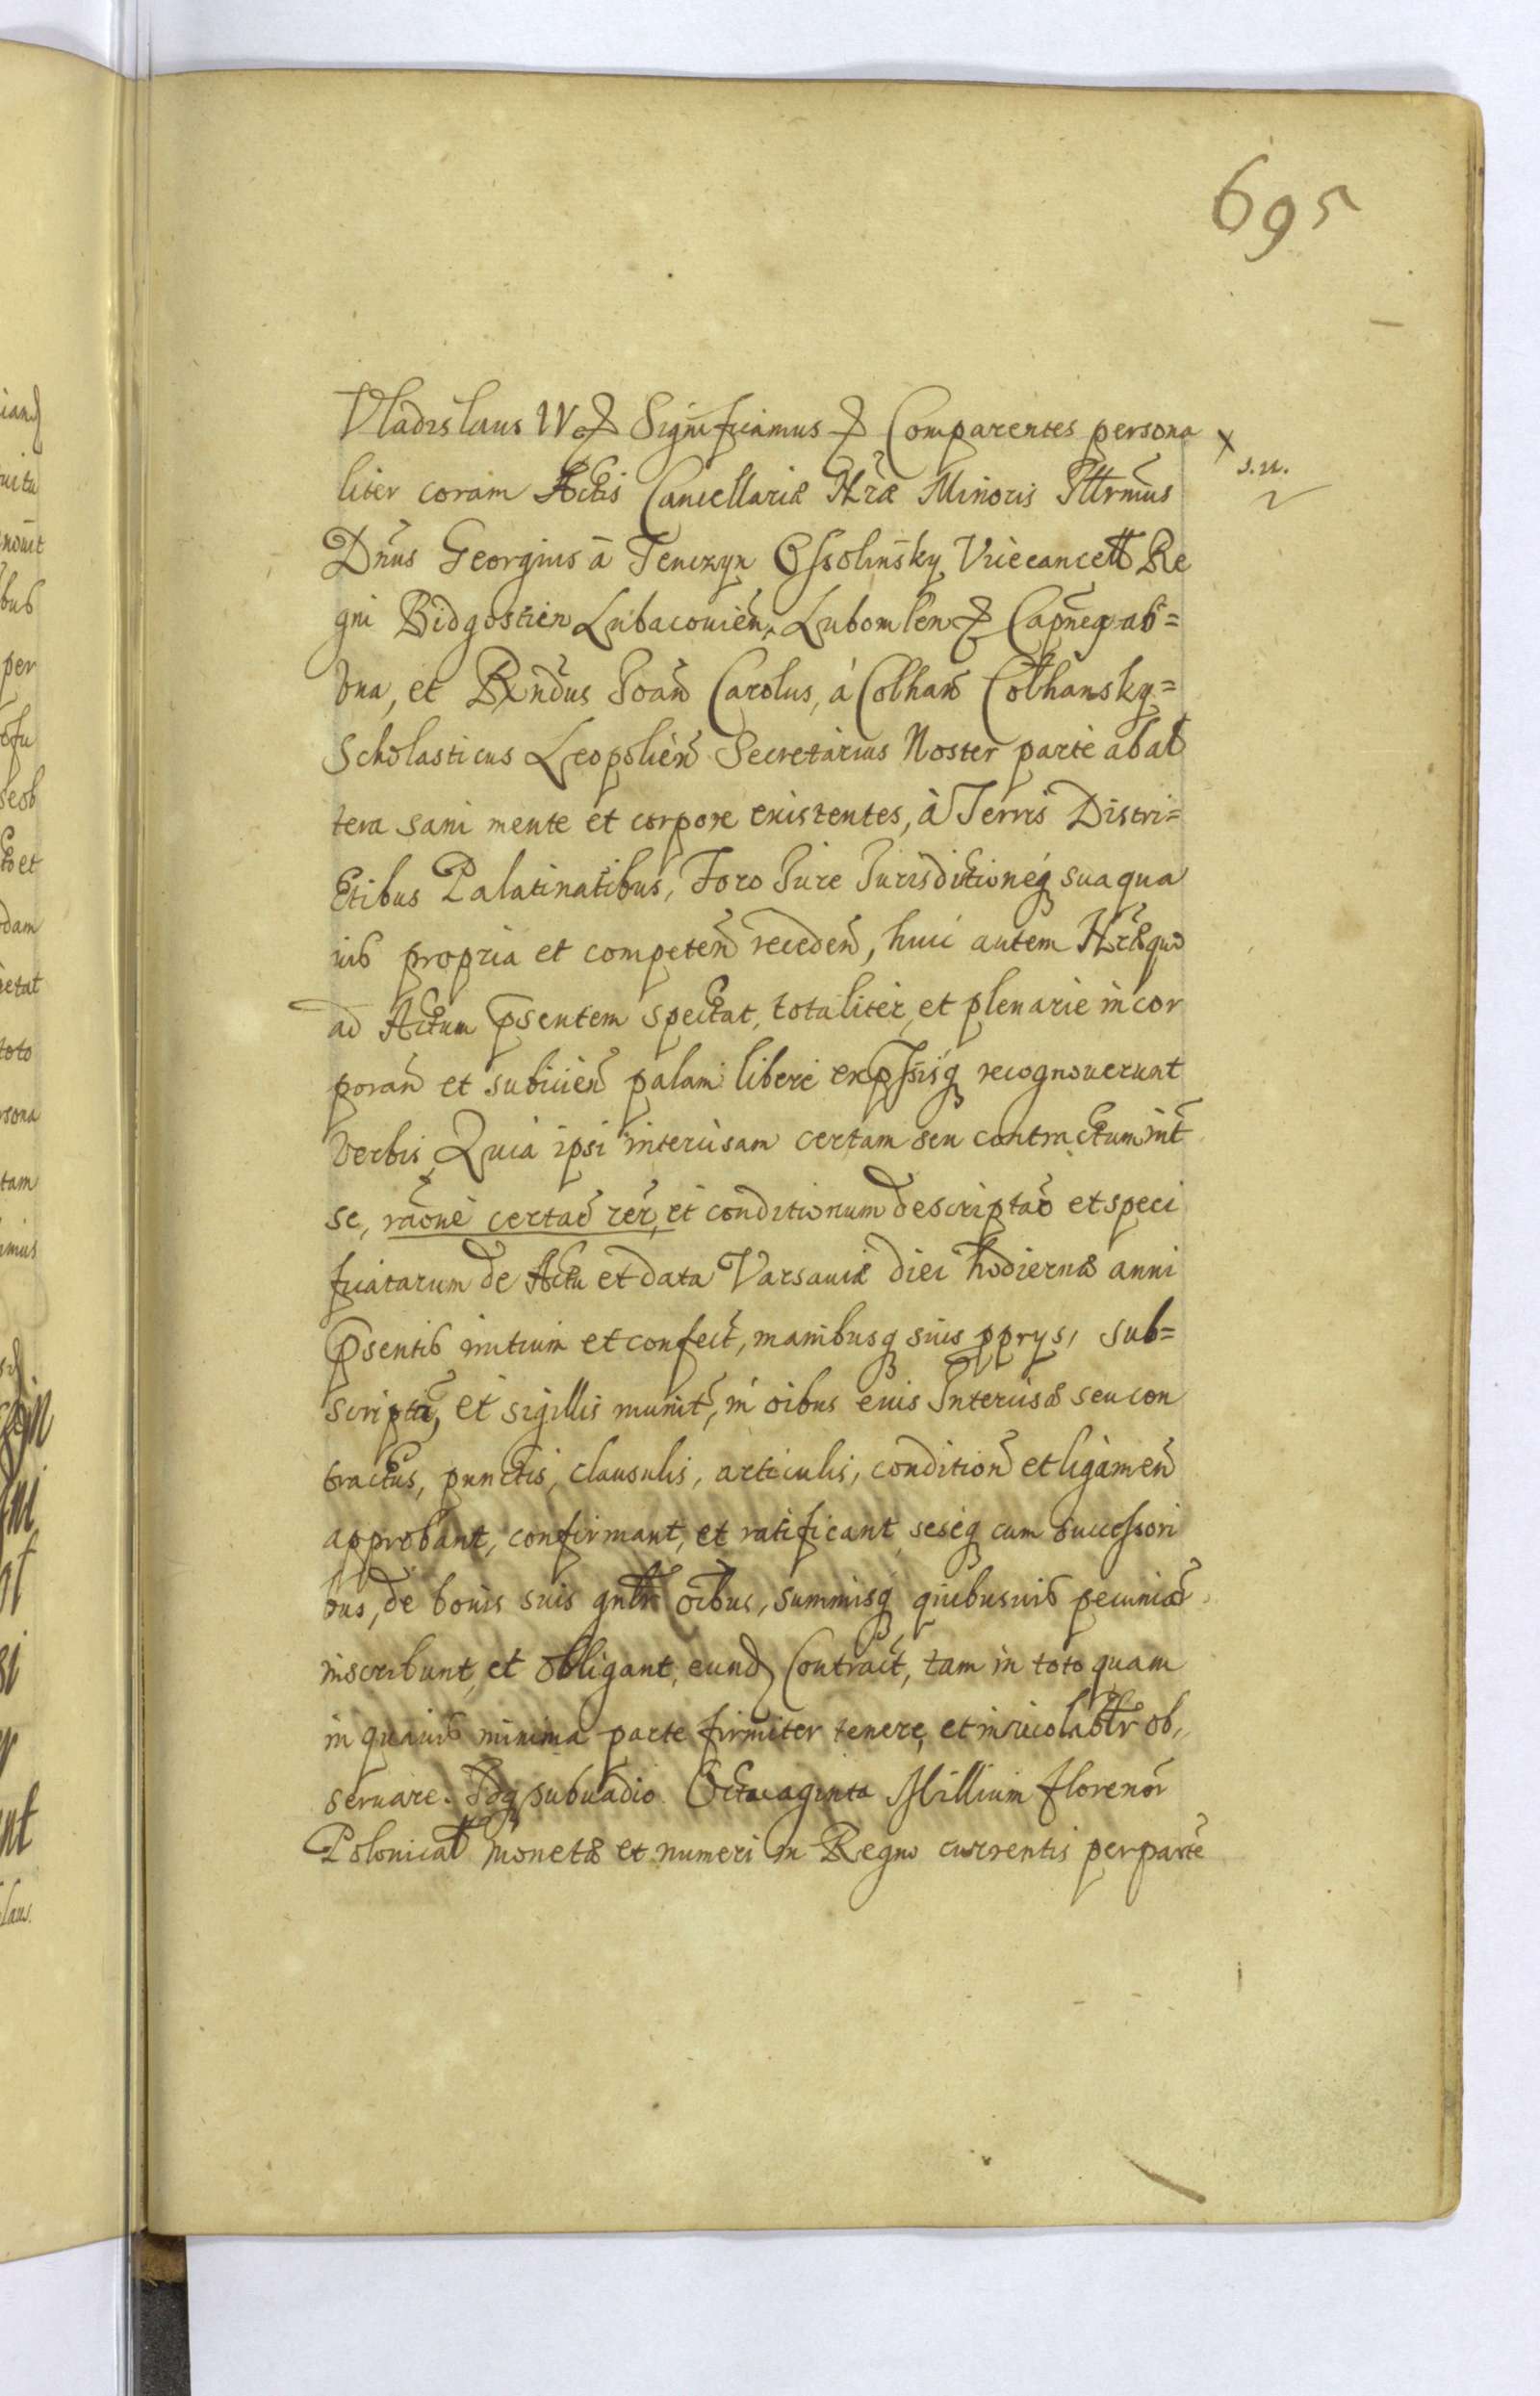 695
Vladislaus IV & Significamus & Comparentes persona
liter coram Actis Cancellariæ Nræ Minoris Illrmus
s. n.
Dnus Georgius à Tenczyn Ossolinsky Vicecancell Re
gni Bidgostien Lubacovien, Lubomlen & Capneq ab=
una, et Rndus Joan Carolus, à
Scholasticus Leopolien Secretarius Noster parte ab al
tera sani mente et corpore existentes, à Terris Distri=
ctibus Palatinatibus, Foro Jure Jurisditioneq sua qua
vis propria et competen receden, huic autem Nræ quo
ad Actum psentem spectat, totaliter, et plenarie incor
poran et subiicien palam libere expssisq recognoverunt
Verbis, Quia ipsi intercisam certam seu contractum int
se, raõne certar rer, et conditionum descriptar et speci
ficatarum de Actu et data Varsaviæ diei hodiernæ anni
psentis initum et confect, manibusq suis pprys, sub=
script, et sigillis munit, in oibus eius Intercisæ seu con
tractus, punctis, clausulis, articulis, condition et ligamen
approbant, confirmant, et ratificant, seseq cum successori
bus, de bonis suis gnlr oibus, summisq quibusvis pecuniar
inscribunt, et obligant, eund Contract, tam in toto quam
in quavis minima parte firmiter tenere, et inviolablr ob,
servare. Idq sub vadio Octuaginta Millium florenor
Polonical monetæ et numeri in Regno currentis per parte